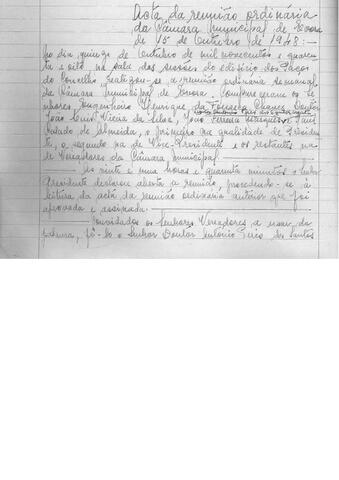 Acta da reunião ordinária
da Câmara Municipal de Evora
de 15 de Outubro de 1948:—
No dia quinze de Outubro de mil novecentos e quaren-
ta e oito na sala das sessões do edificio dos Paços
do Concelho realizou-se a reunião ordinaria semanal
da Câmara Municipal de Evora. Compareceram os Se-
nhores Engenheiro Henrique da Fonseca Chaves, Doutor
João Luis Vieira da Silva, João Pereira
de Almeida, o primeiro na qualidade de Presiden-
te, o segundo na de Vice-Presidente e os restantes na
de Vereadores da Câmara Municipal.
Às vinte e uma horas e quarenta minutos o Senhor
Presidente declarou aberta a reunião, procedendo-se à
leitura da acta da reunião ordinaria anterior que foi
aprovada e assinada.
Convidados os Senhores Vereadores a usar da
palavra, fê-lo o Senhor Doutor Antonio dos Santos